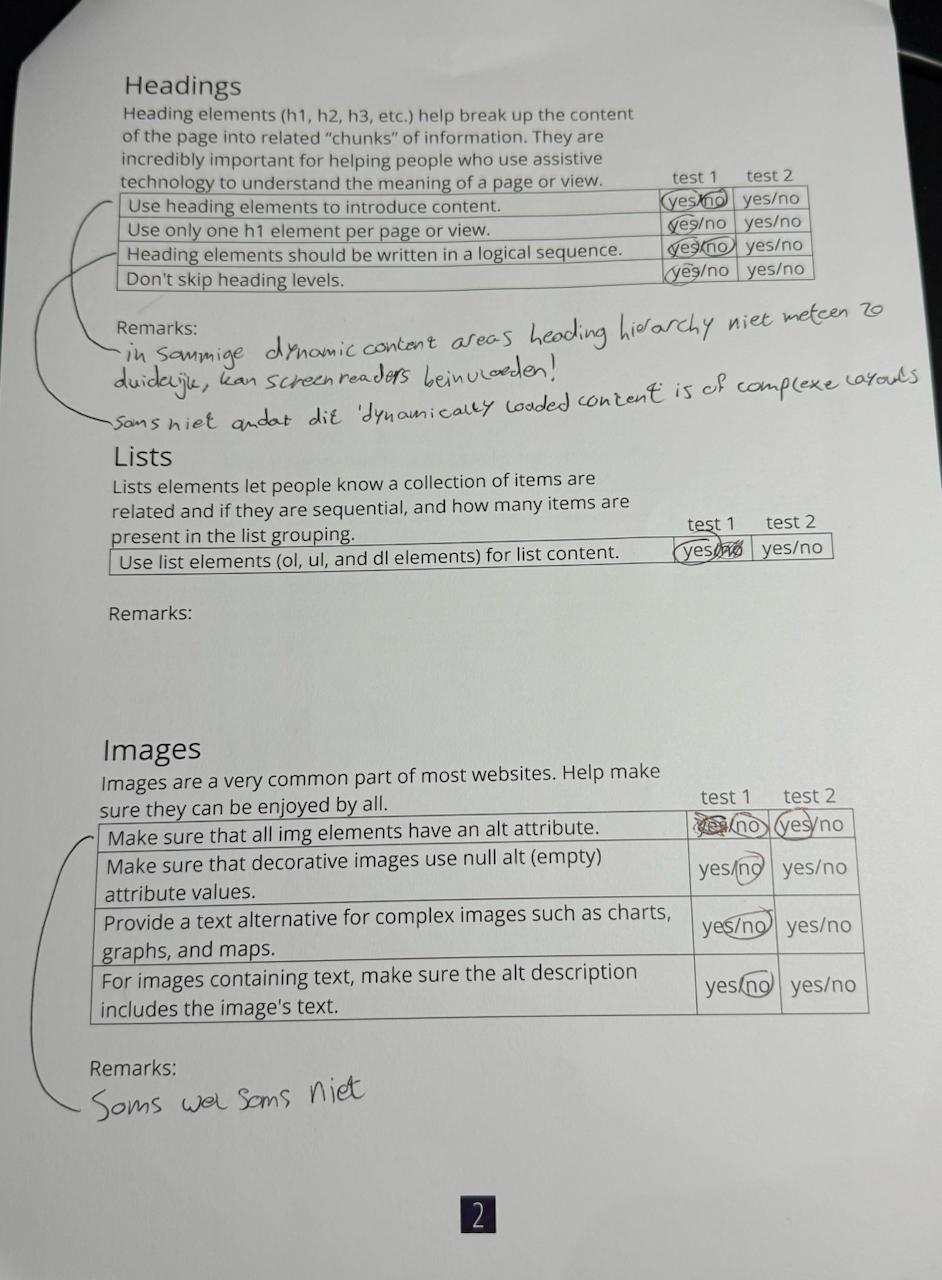 Headings
Heading elements (h1, h2, h3, etc.) help break up the content
of the page into related “chunks” of information. They are
incredibly important for helping people who use assistive
technology to understand the meaning of a page or view. test 1 test 2
Use heading elements to introduce content. yes/no yes/no
Use only one h1 element per page or view. yes/no yes/no
Heading elements should be written in a logical sequence. yes/no yes/no
Don't skip heading levels. yes/no yes/no
Remarks:
in sommige dynamic content areas heading hierarchy niet meteen zo
duidelijk, kan screenreaders beinvloeden!
soms niet omdat dit 'dynamically loaded content' is of complexe layouts
Lists
Lists elements let people know a collection of items are
related and if they are sequential, and how many items are
present in the list grouping. test 1 test 2
Use list elements (ol, ul, and dl elements) for list content. yes/no yes/no
Remarks:
Images
Images are a very common part of most websites. Help make
sure they can be enjoyed by all. test 1 test 2
Make sure that all img elements have an alt attribute. yes/no yes/no
Make sure that decorative images use null alt (empty)
attribute values. yes/no yes/no
Provide a text alternative for complex images such as charts,
graphs, and maps. yes/no yes/no
For images containing text, make sure the alt description
includes the image's text. yes/no yes/no
Remarks:
Soms wel soms niet
2